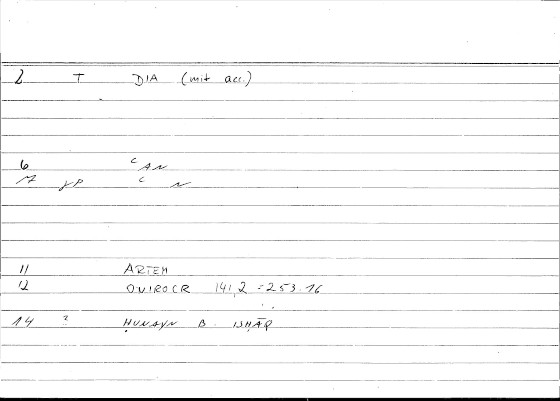 2 T DIA (mit acc.)
6 ʿAN
7 γρ ʿ N
11 ARTEM
12 ONIROCR 141,2 = 253.16
14 ? ḤUNAYN B. ISḤĀQ